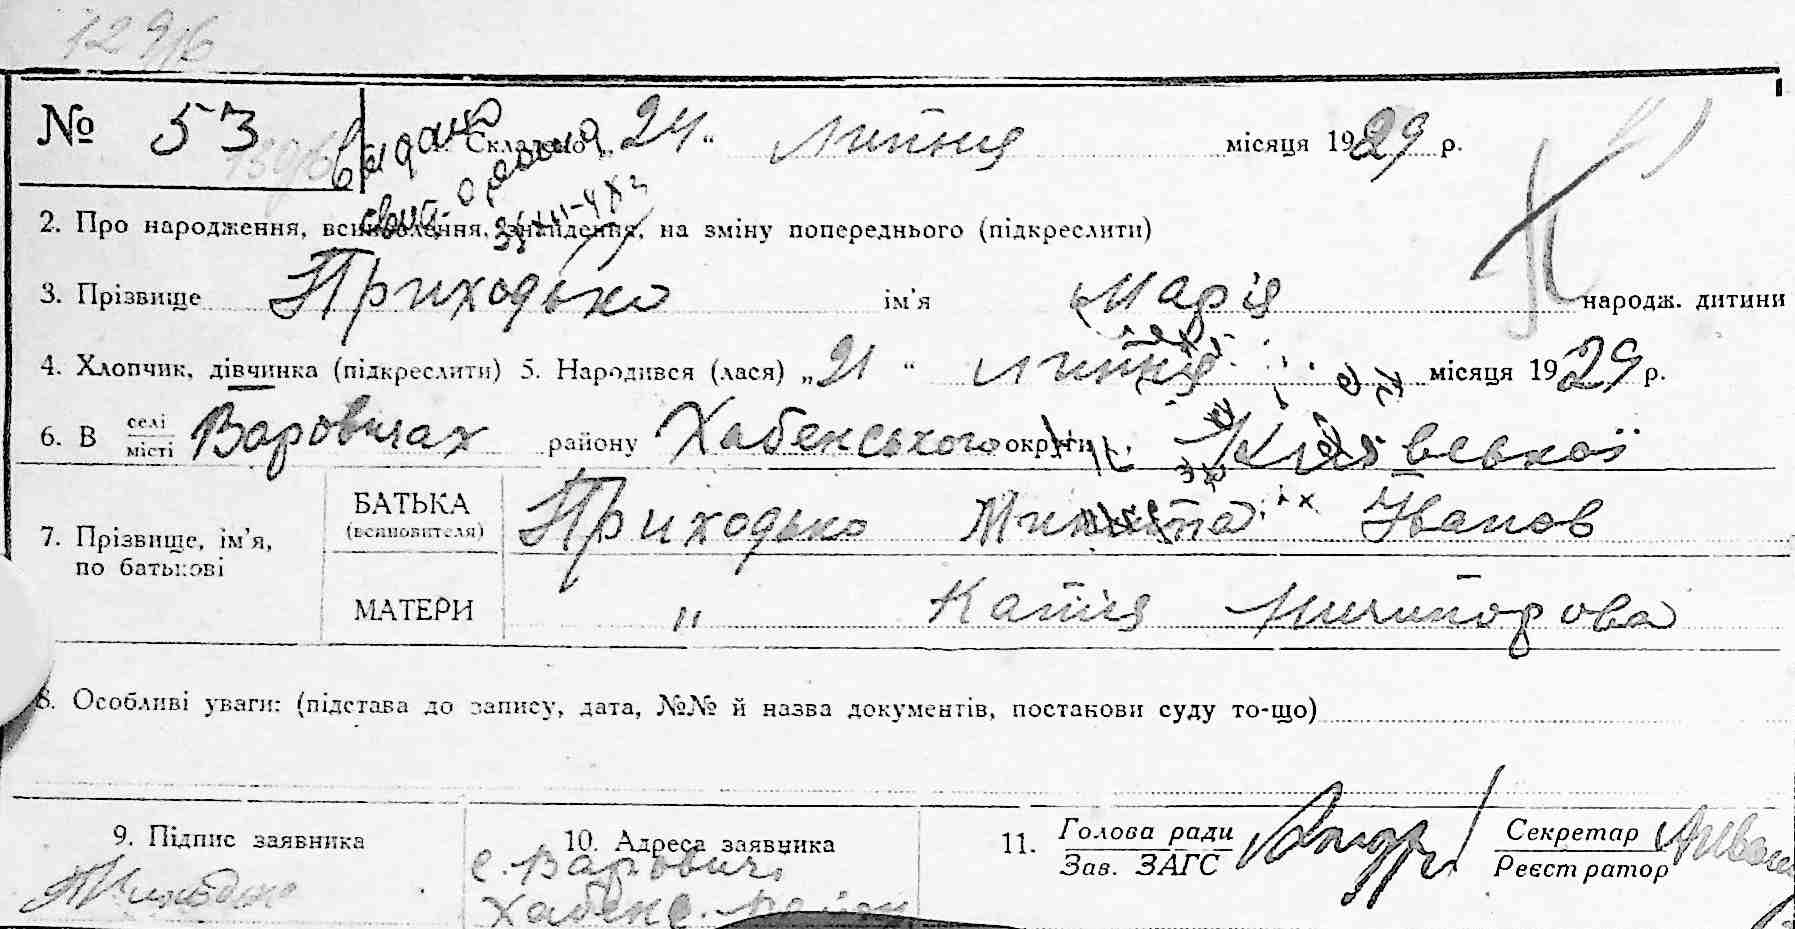 12916
№ 53 Складено „24“ липня місяця 1929 р.
видано
свид.
2. Про народження, всиновлення, знайдення, на зміну попереднього (підкреслити)
3. Прізвище Приходько ім'я Марія народж. дитини
4. Хлопчик, дівчинка (підкреслити) 5. Народився (лася) „21“ липня місяця 1929 р.
6. В селі/місті Варовичах району Хабенського округи Київської
7. Прізвище, ім'я, по батькові
БАТЬКА (всиновителя) Приходько Микита Іванов
МАТЕРИ " Катія Ничипорова
8. Особливі уваги: (підстава до запису, дата, №№ й назва документів, постанови суду то-що)
9. Підпис заявника
10. Адреса заявника
11. Голова ради Секретар
Зав. ЗАГС Реєстратор
Приходько
с. Варовичі
Хабенс. район